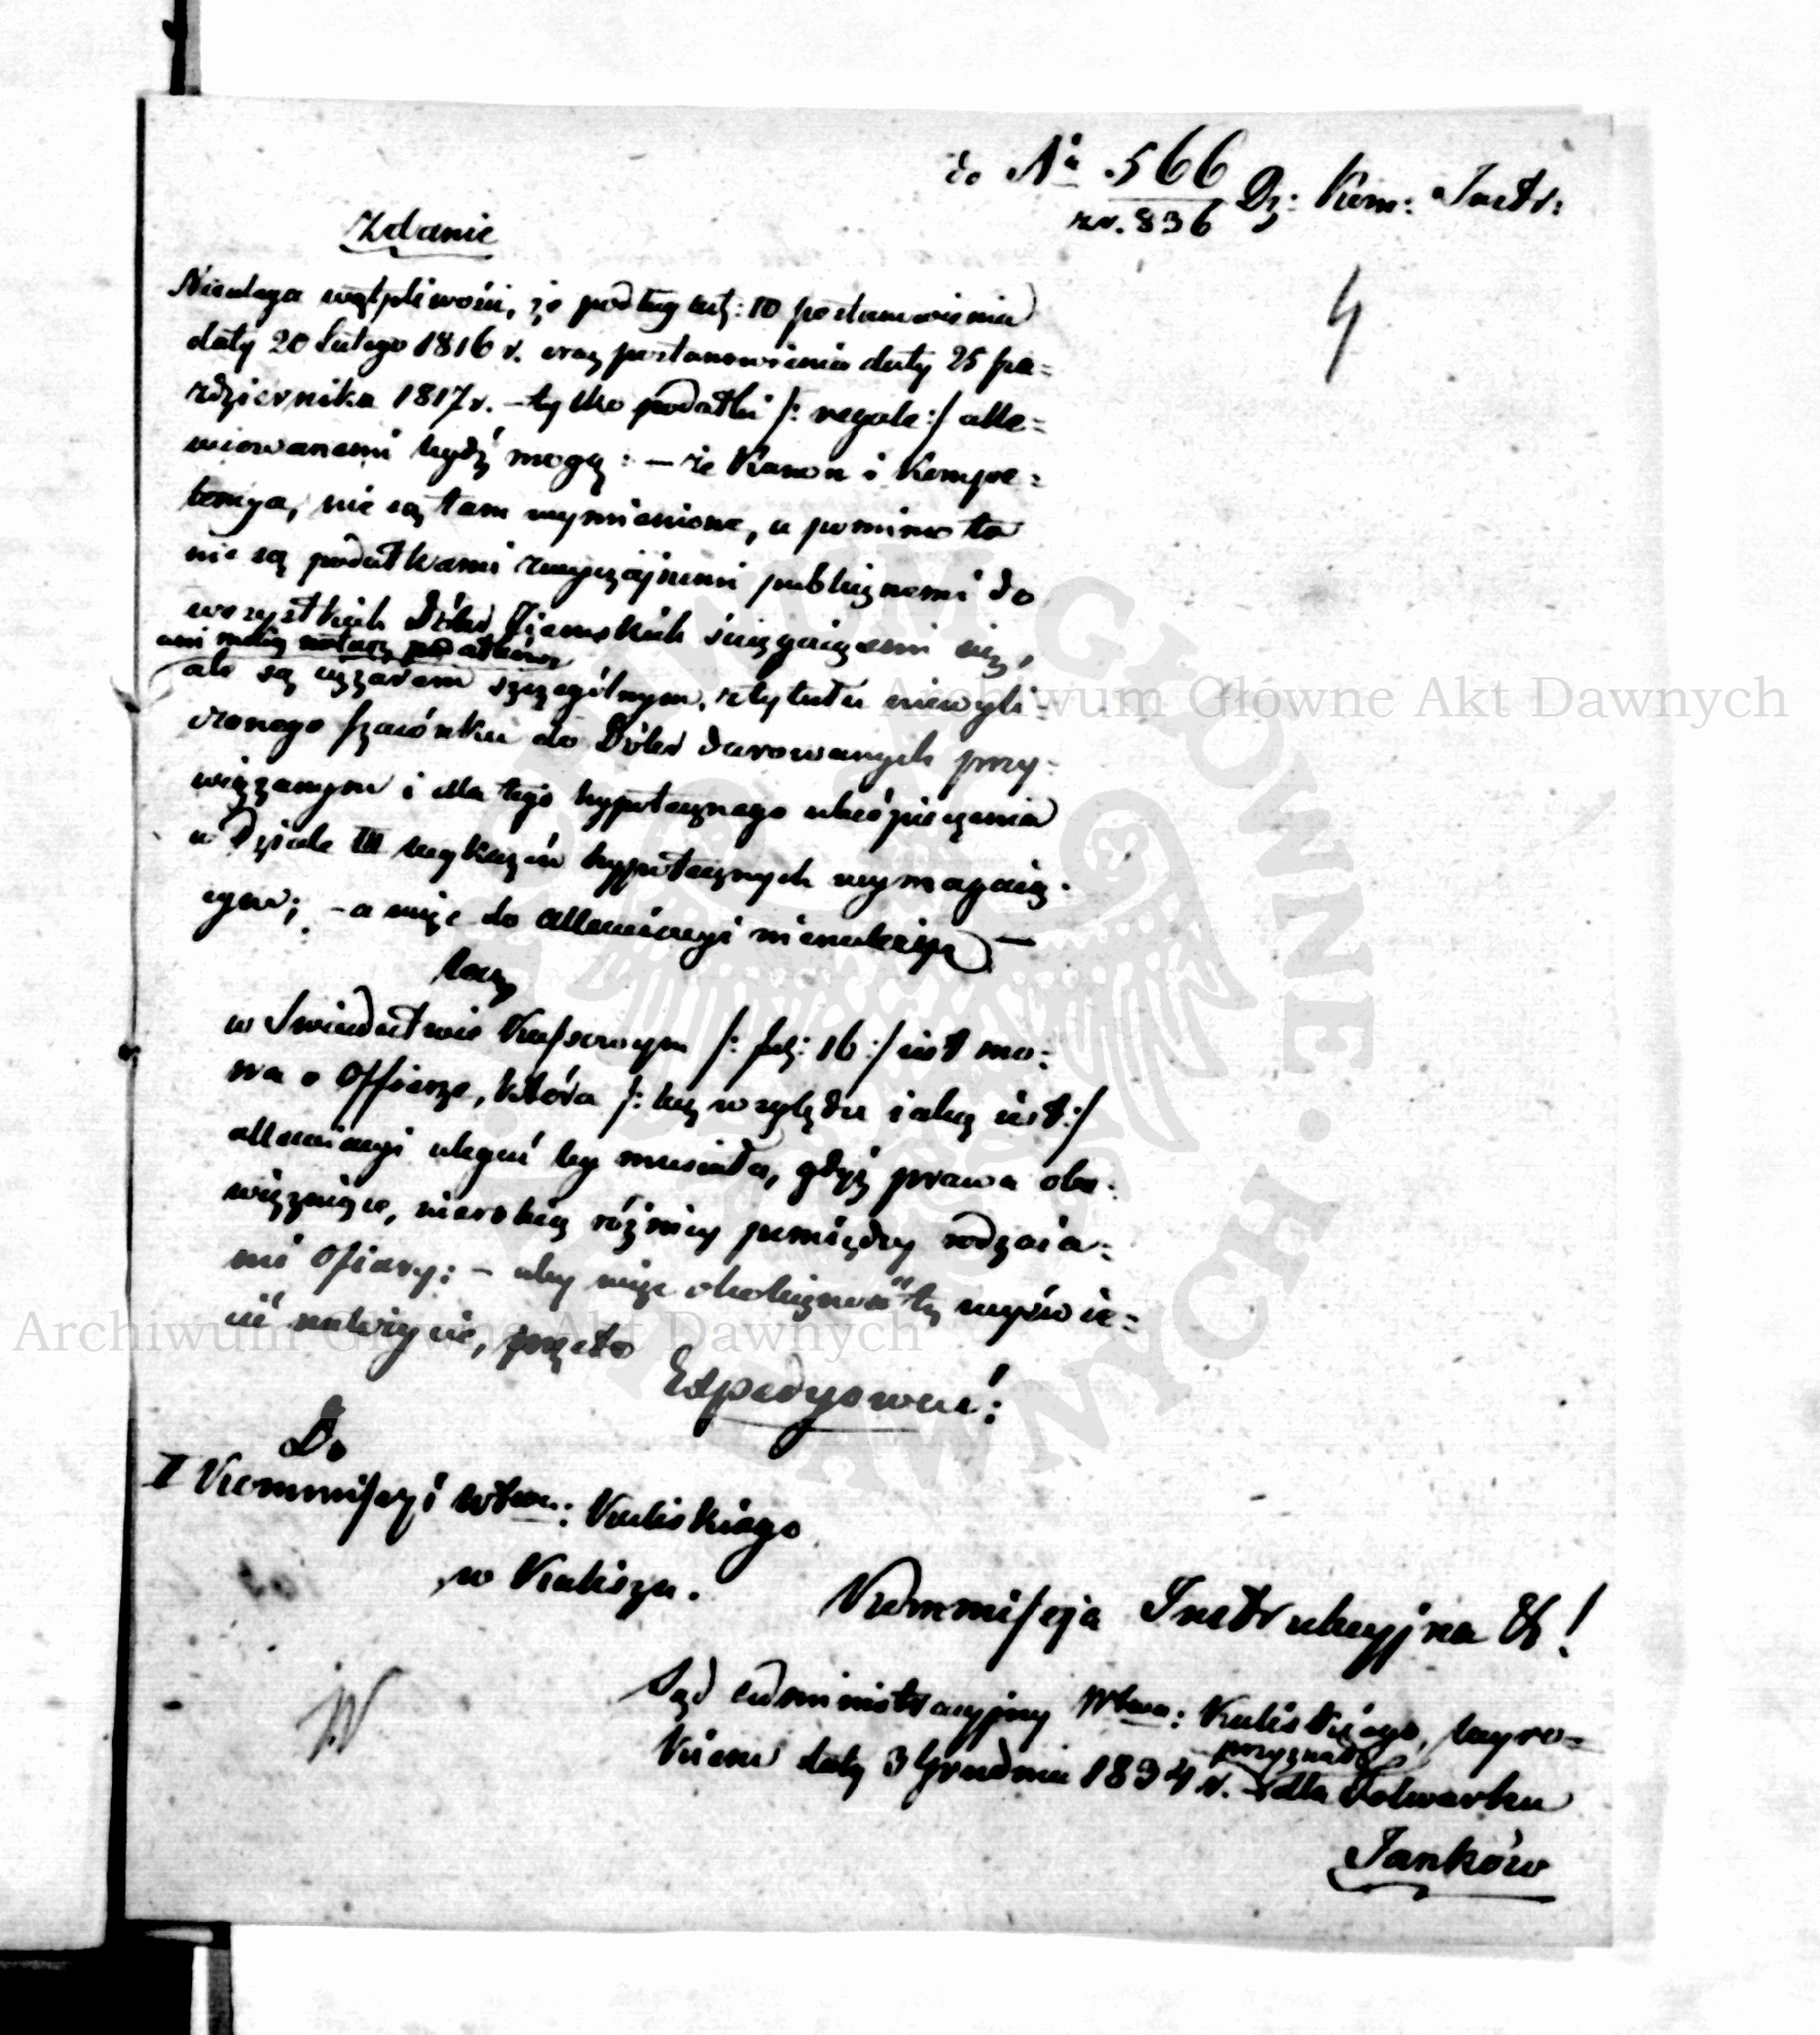 do Nru 566 Dz: Kom: Instr:
rr. 836
4
Zdanie
Nieulega wątpliwości, że podług art: 10 postanowienia
daty 20 Lutego 1816 r. oraz postanowienia daty 25 Pa=
ździernika 1817 r. – tylko podatki /: regale :/ alle=
wiowanemi bydź mogą: – że Kanon i Kompe=
tencya, nie są tam wymienione, a pomimo to
nie są podatkami zwyczajnemi publicznemi do
wszystkich Dóbr Ziemskich ściągaiącemi się,
ani maią natury podatków
ale są ciężarem szczególnym, z tytułu niewyli=
czonego szacunku do Dóbr darowanych przy=
wiązanym i dla tego hypotecznego ubespieczenia
w Dziale III wykazów hypotecznych wymagaią=
cym; – a więc do allewiacyi nienależą –
lecz
w Świadectwie Kassowym /: fol: 16 :/ iest mo=
wa o Offierze, która /: bez względu iaką iest :/
allewiacyi uledz by musiała, gdyż prawa obo=
wiązuiące, nierobią różnicy pomiędzy rodzaia=
mi Ofiary: – aby więc okoliczność tę wyświe=
cić należycie, przeto
Expedyować:
Do
I Kommissyi Wtwa: Kaliskiego
w Kaliszu.
Kommissja Instrukcyjna &!
Sąd administracyjny Wtwa: Kaliskiego, wyro=
kiem daty 3 Grudnia 1834 r. przyznał dla Folwarku
Janków